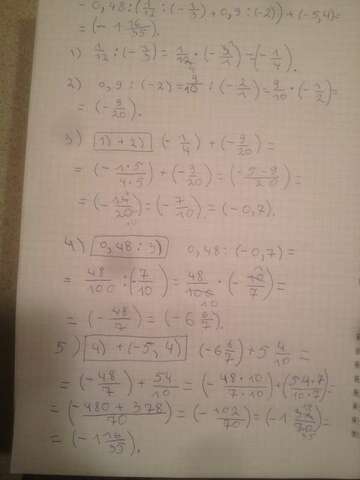 - 0,48 : (1/12 : (-1/3) + 0,9 : (-2)) + (-5,4) =
= (-1 16/35).
1) 1/12 : (-1/3) = 1/12 · (-3/1) = (-1/4).
2) 0,9 : (-2) = 9/10 : (-2/1) = 9/10 · (-1/2) =
= (-9/20).
3) 1) + 2) (-1/4) + (-9/20) =
= (-1·5/4·5) + (-9/20) = (-5-9/20) =
= (-14/20) = (-7/10) = (-0,7).
4) 0,48 : 3) 0,48 : (-0,7) =
= 48/100 : (-7/10) = 48/100 · (-10/7) =
10
= (-48/7) = (-6 6/7).
5) 4) + (-5,4) (-6 6/7) + 5 4/10 =
= (-48/7) + 54/10 = (-48·10/7·10) + (54·7/10·7) =
= (-480+378/70) = (-102/70) = (-1 32/70) =
= (-1 16/35).